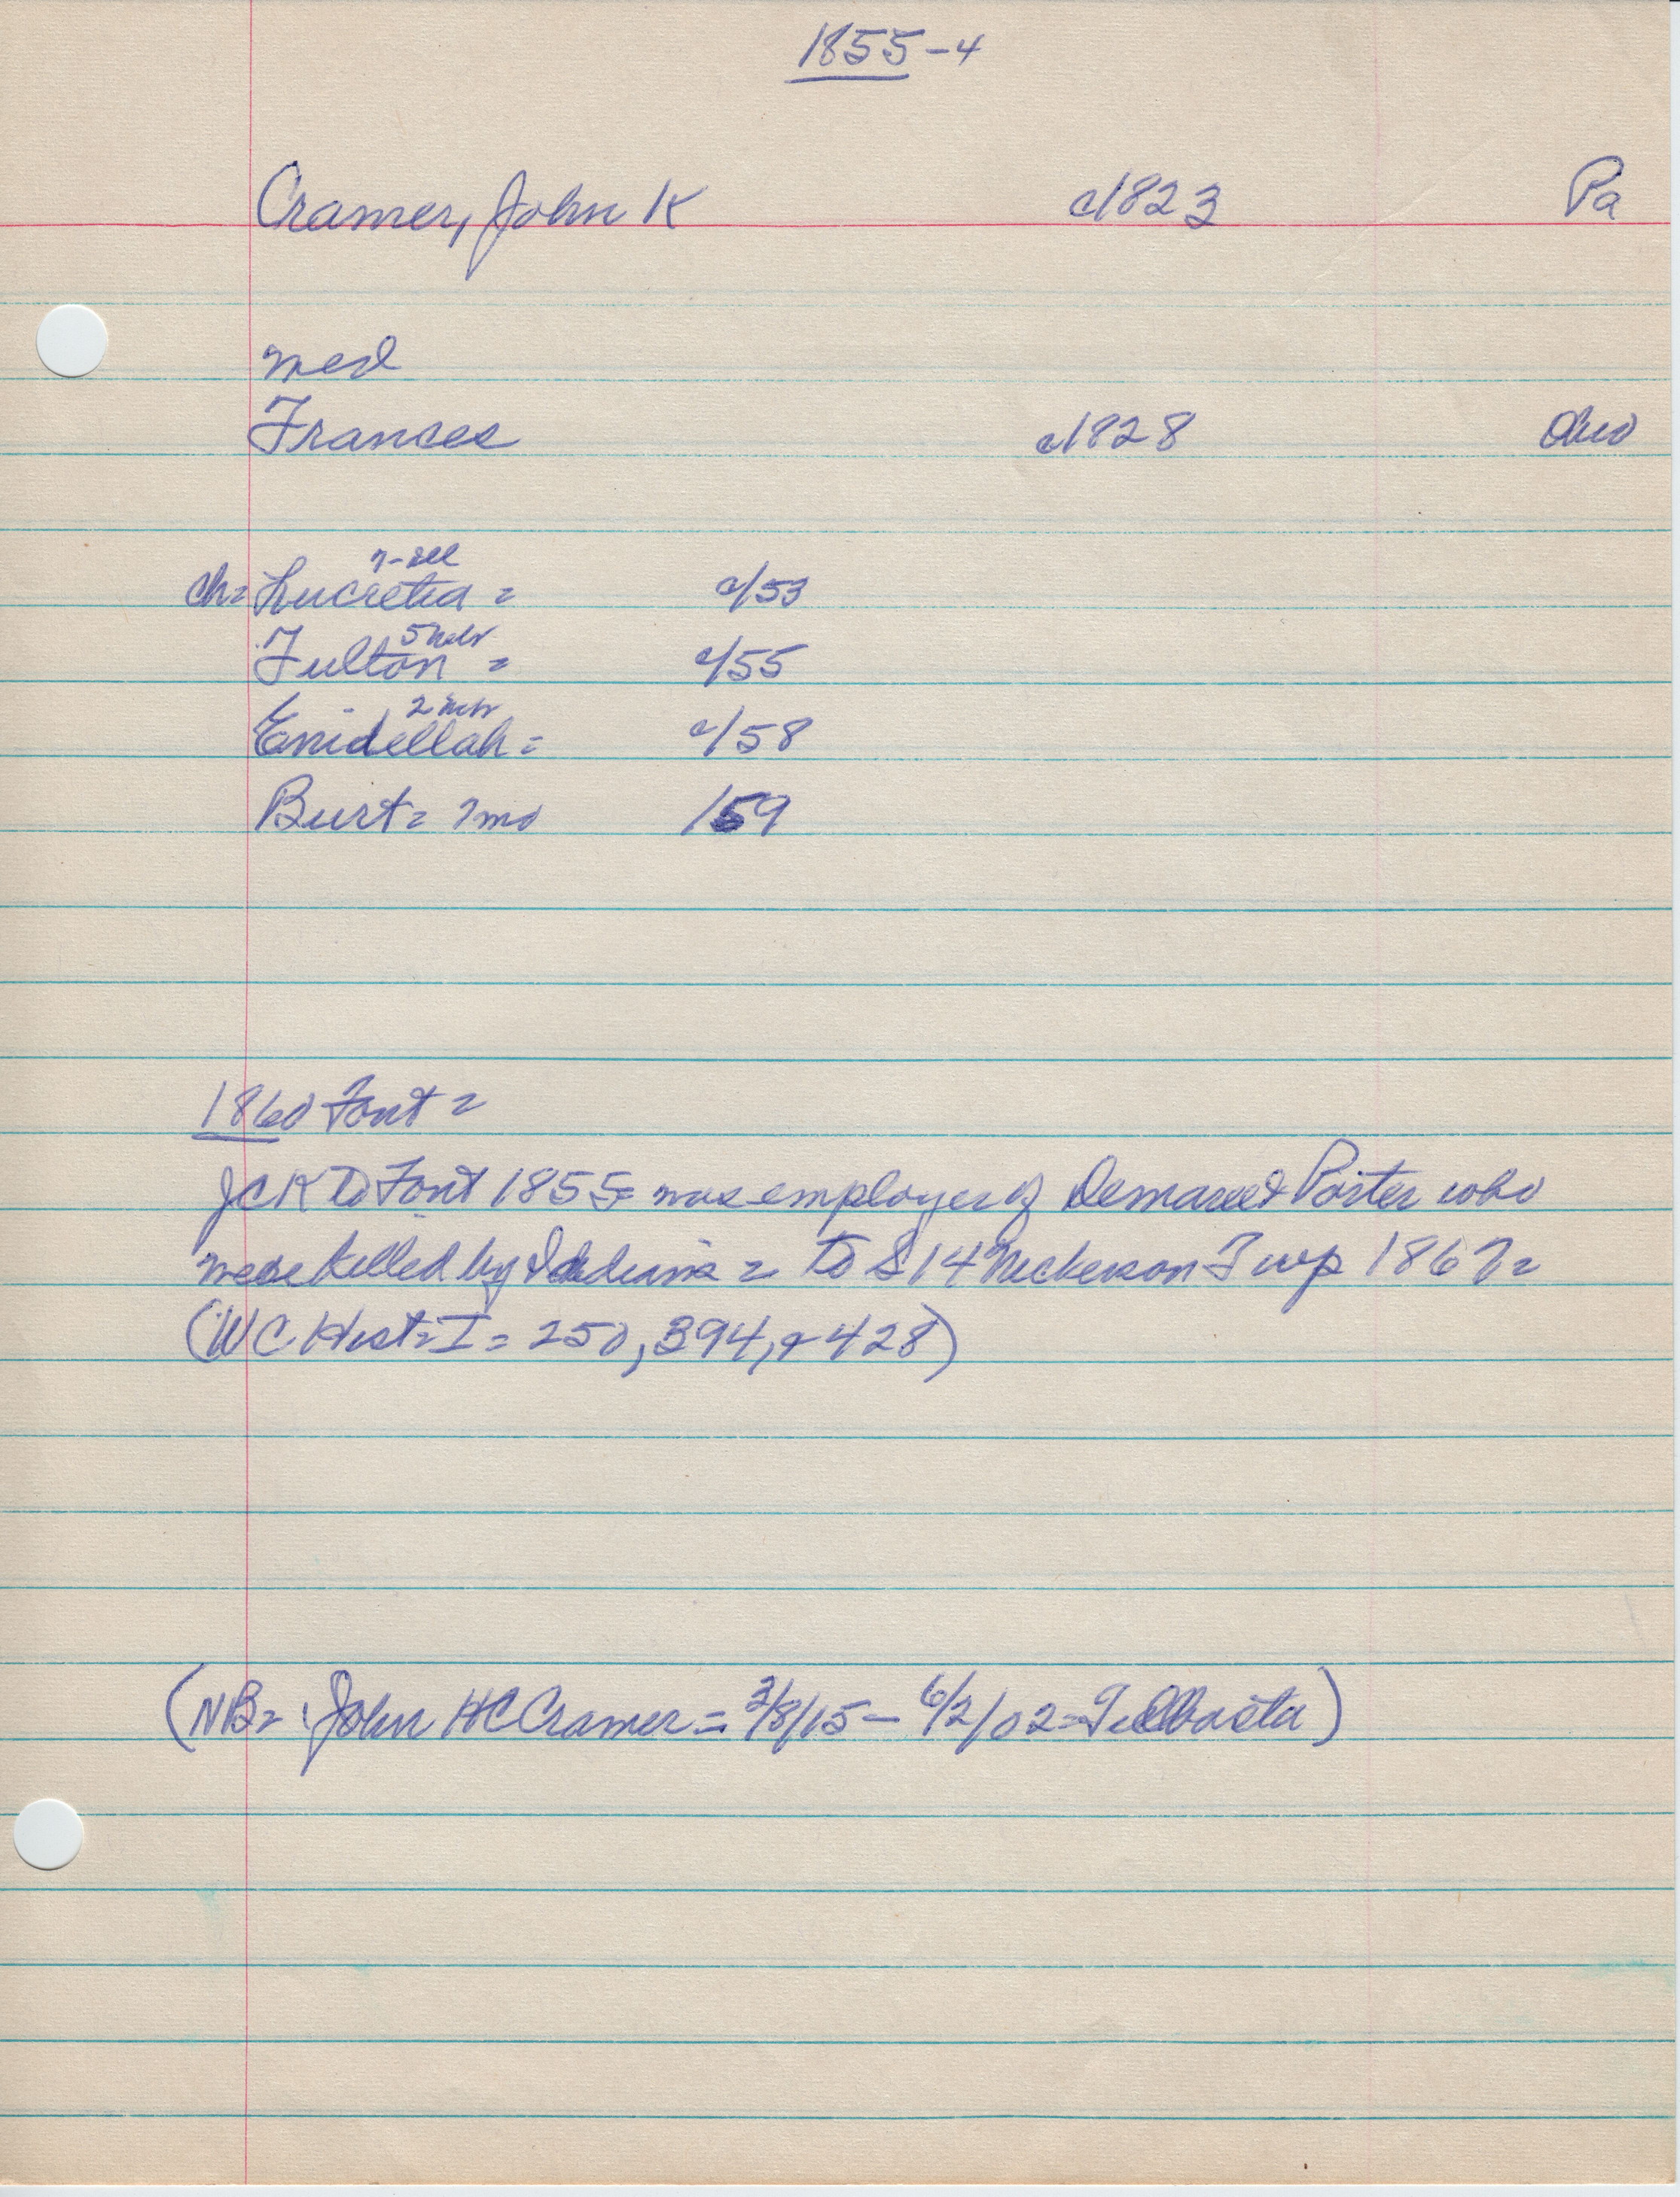 1855-4
Cramer, John K c/1823 Pa
med
Frances c/1828 Ohio
7-Ill
ch= Lucretia = c/53
5 Nebr
Fulton = c/55
2 Nebr
Enidellah = c/58
Burt = 7mo 1859
1860 Font =
JCK to Font 1855= was employer of Demaree & Porter who
were killed by Indians = to S14 Nickerson Twp 1867=
(WC Hist= I = 250, 394, & 428)
(NB= John HC Cramer = 3/8/15 - 6/2/02 = Tel Basta)